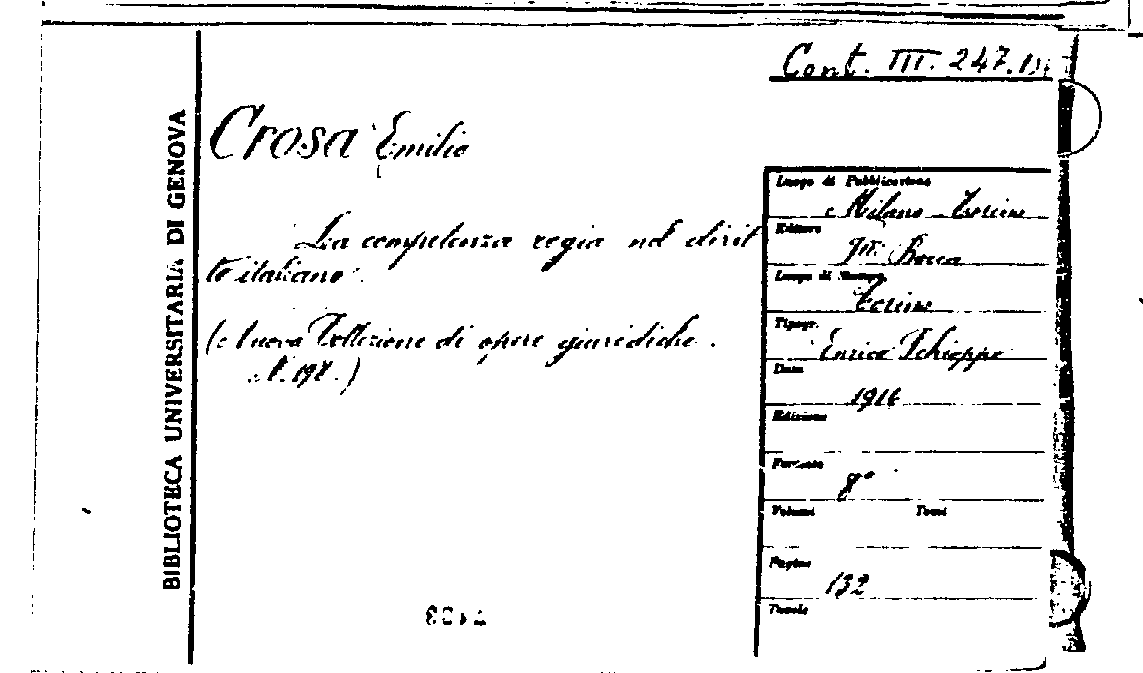 Cont. III. 247.
BIBLIOTECA UNIVERSITARIA DI GENOVA
Crosa Emilio
La competenza regia nel dirit
to italiano.
(Nuova Collezione di opere giuridiche.
N. 197.)
Luogo di Pubblicazione
Milano Torino
Editore
Fll. Bocca
Luogo di Stampa
Torino
Tipogr.
Enrico Schioppo
Data
1916
Edizione
Formato
8°
Volumi Tomi
Pagine
132
Tavole